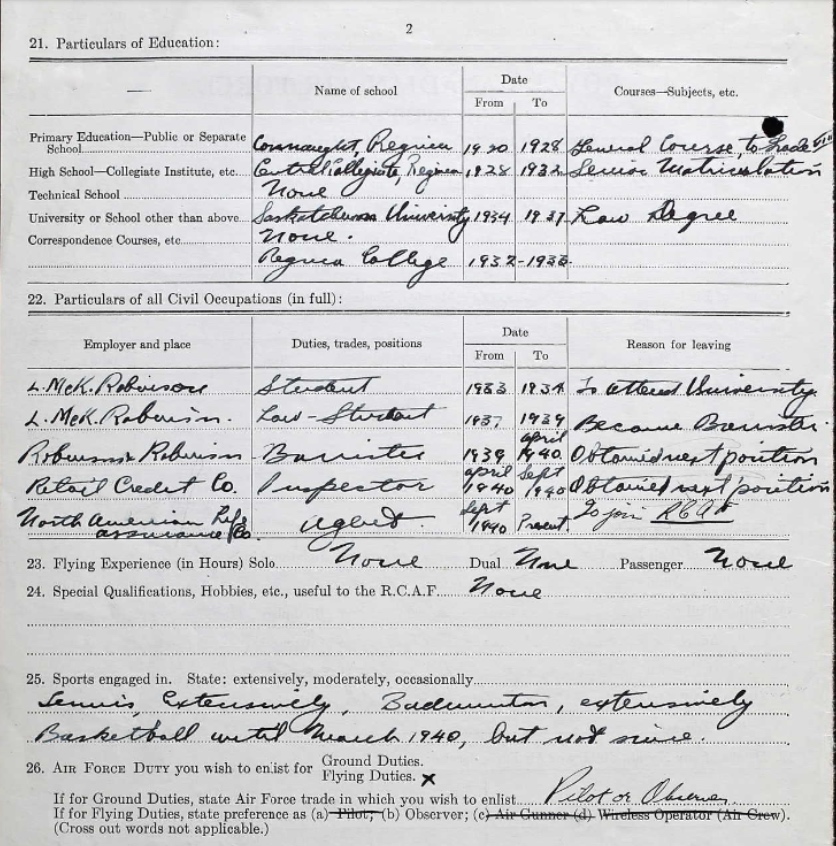 2
21. Particulars of Education:
— Name of school Date From To Courses—Subjects, etc.
Primary Education—Public or Separate
School Connaught, Regina 1920 1928 General Course, to Grade VIII
High School—Collegiate Institute, etc. Central Collegiate, Regina 1928 1932 Senior Matriculation
Technical School None
University or School other than above Saskatchewan University 1934 1937 Law Degree
Correspondence Courses, etc. None.
Regina College 1932-1933
22. Particulars of all Civil Occupations (in full):
Employer and place Duties, trades, positions Date From To Reason for leaving
L. McK. Robinson Student 1933 1934 To attend University
L. McK. Robinson. Law-Student 1937 1939 Became Barrister.
Robinson & Robinson Barrister 1939 april 1940 Obtained next position
Retail Credit Co. Inspector april 1940 Sept 1940 Obtained next position
North American Life assurance Co. agent. Sept 1940 Present. To join RCAF
23. Flying Experience (in Hours) Solo None Dual None Passenger None
24. Special Qualifications, Hobbies, etc., useful to the R.C.A.F. None
25. Sports engaged in. State: extensively, moderately, occasionally
Tennis, Extensively, Badminton, extensively
Basketball until March 1940, but not since.
26. AIR FORCE DUTY you wish to enlist for Ground Duties.
Flying Duties. x
If for Ground Duties, state Air Force trade in which you wish to enlist Pilot or Observer.
If for Flying Duties, state preference as (a) Pilot; (b) Observer; (c) Air Gunner (d) Wireless Operator (Air Crew).
(Cross out words not applicable.)